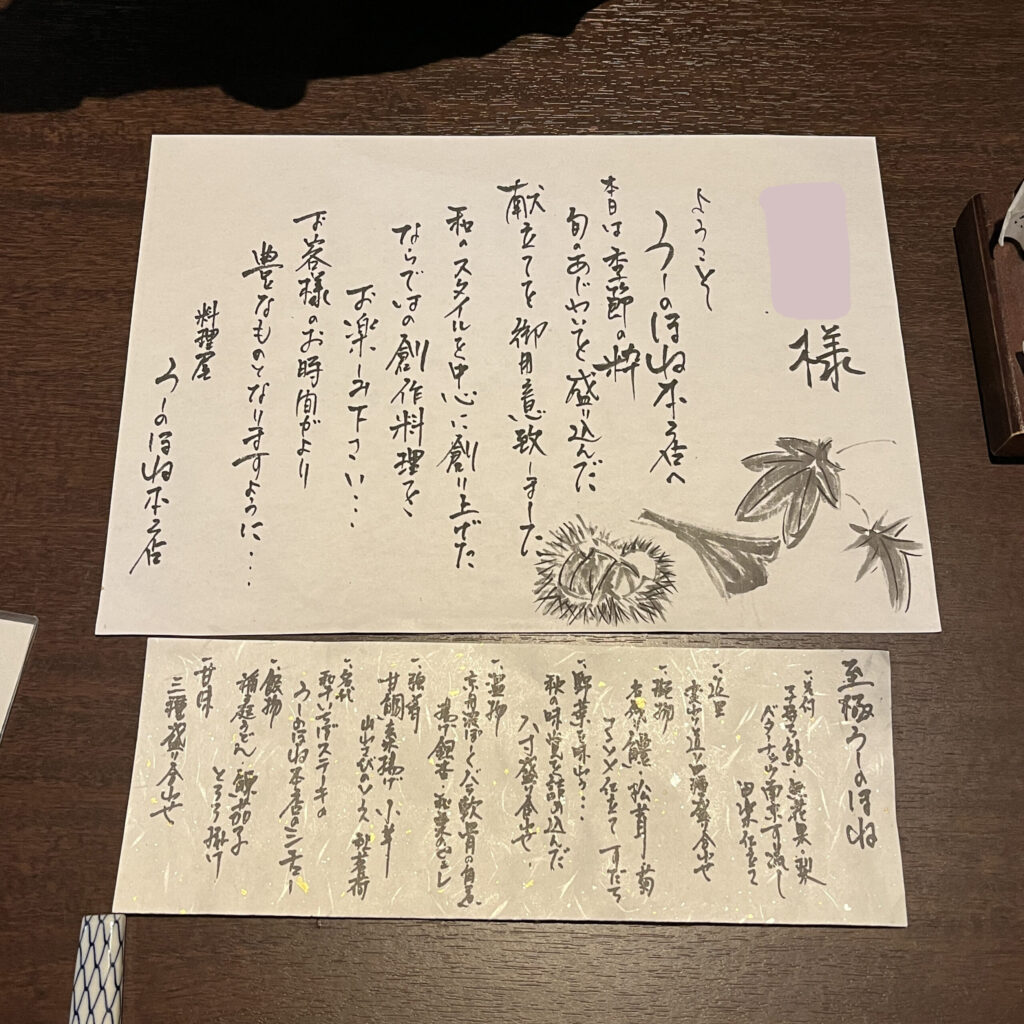 様
ようこそ
うしのほね本店へ
本日は季節の粋
旬のあじわいを盛り込んだ
献立てを御用意致しました
和のスタイルを中心に創り上げた
ならではの創作料理を
お楽しみ下さい…
お客様のお時間がより
豊なものとなりますように…
料理屋
うしのほね本店
至極うしのほね
一、先付
子持ち鮎・無花果・梨
バターナッツ南京すり流し
田楽仕立て
一、造里
四種盛り合わせ
一、椀物
名残り鱧・松茸・菊
仕立て すだち
一、即菜を味わう…
秋の味覚を詰め込んだ
八寸盛り合わせ
一、温物
揚げ銀杏
一、強肴
甘鯛 素揚げ 小芋
山わさびのソース
一、名代
和牛いちぼステーキの
うしのほね本店のシチュー
一、飯物
稲庭うどん
とろろ掛け
一、甘味
三種盛り合わせ